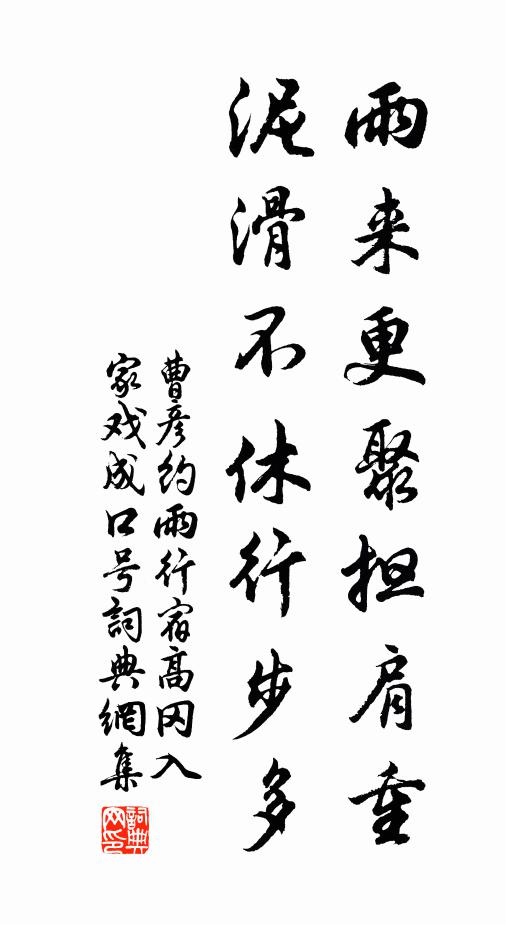 雨来更聚担肩重
泥滑不休行步多
曹彦约雨行宿高冈入
家戏成口号詞典網集
詞典网印